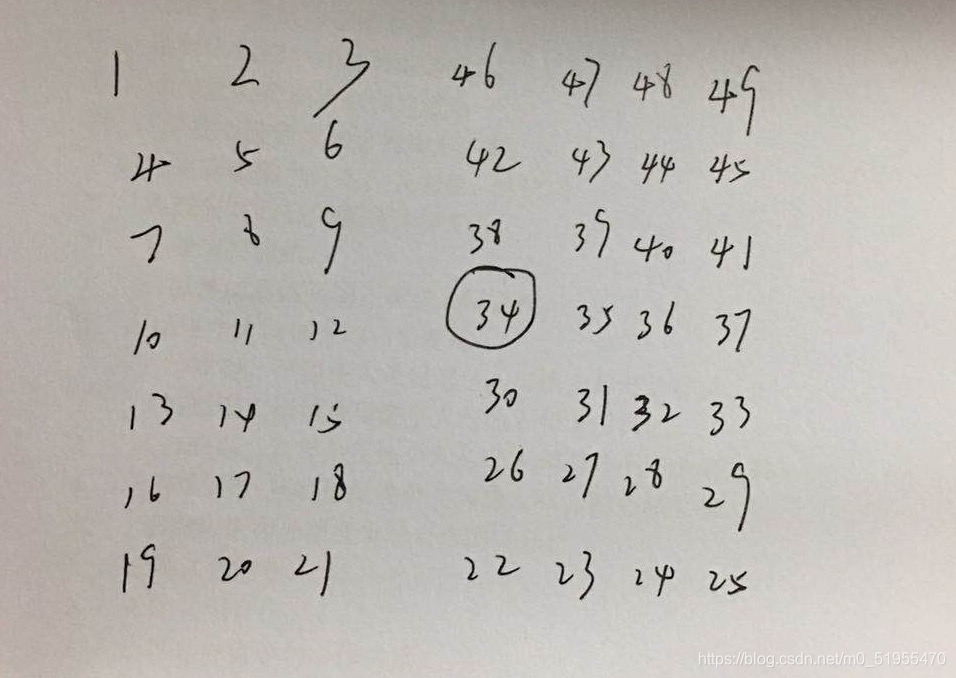 1 2 3 46 47 48 49
4 5 6 42 43 44 45
7 8 9 38 39 40 41
10 11 12 34 35 36 37
13 14 15 30 31 32 33
16 17 18 26 27 28 29
19 20 21 22 23 24 25
https://blog.csdn.net/m0_51955470